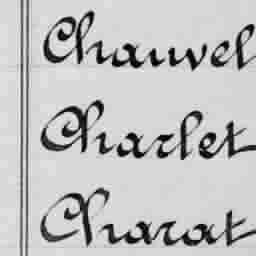 Chauvel
Charlet
Charat